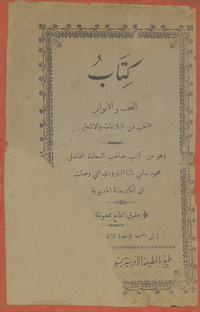 كِتَابُ
التحف والانوار
المنتخب من البلاغات والاشعار
وهو من كتب صاحب السعادة الفاضل
محمود سامي باشا البارودي التي وصلت
الى الكتبخانة الخديوية
حقوق الطبع محفوظة
ثلاثة
طبع بالمطبعة الادبية